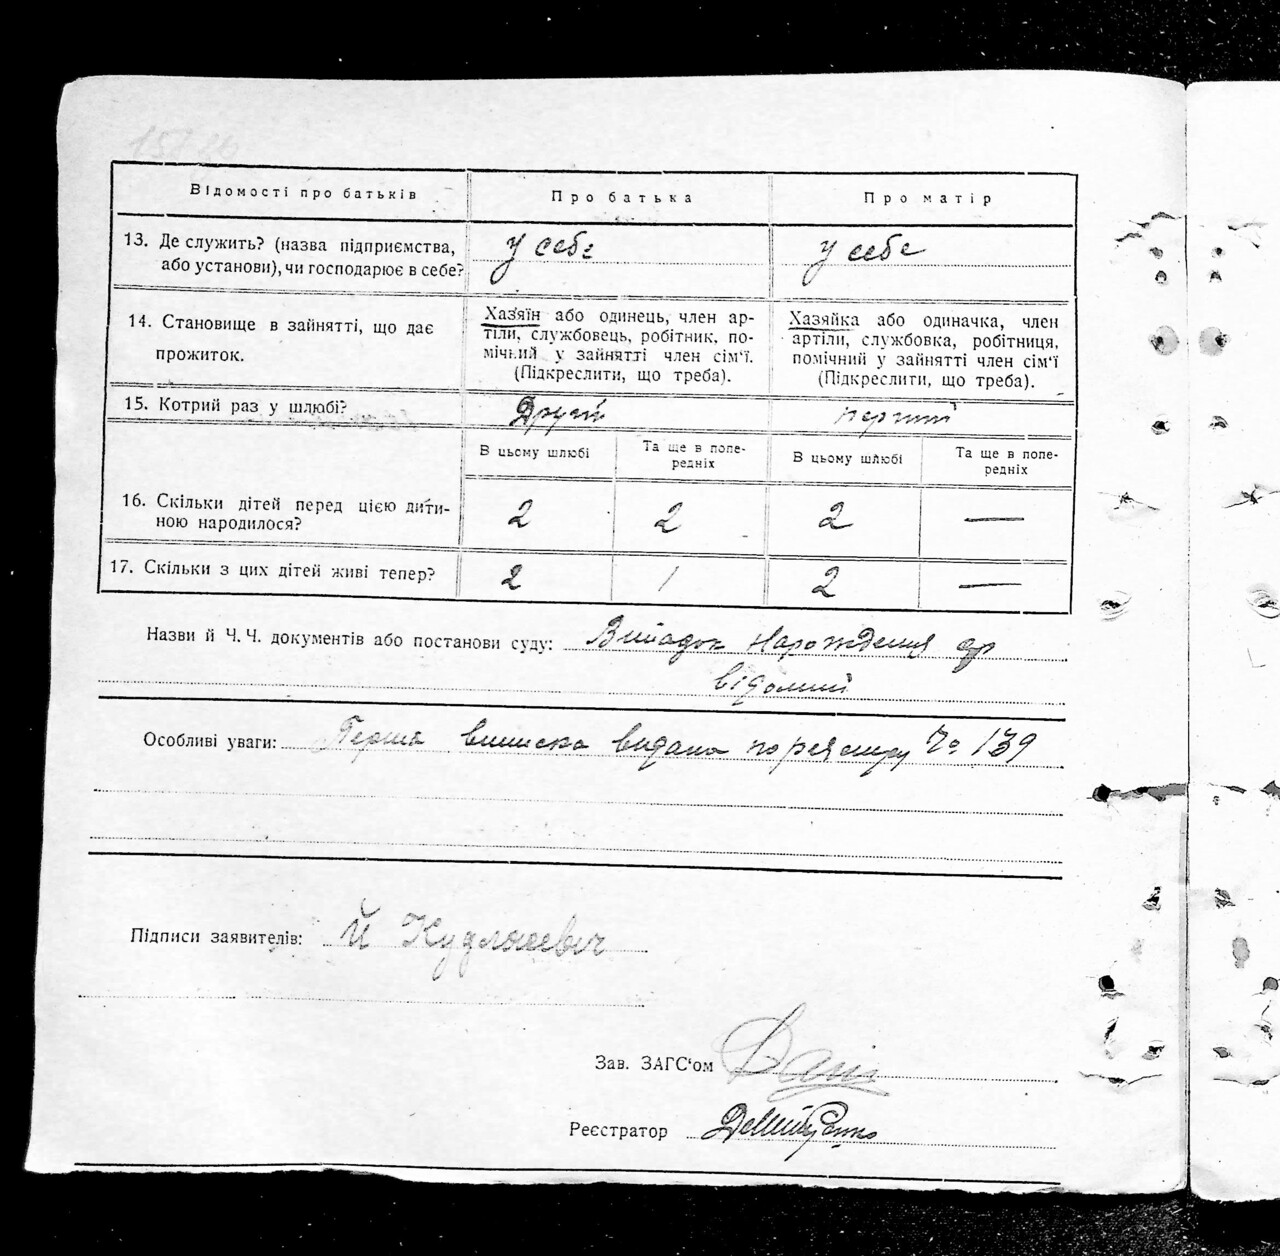 Відомості про батьків
Про батька
Про матір
13. Де служить? (назва підприємства, або установи), чи господарює в себе?
у себе
у себе
14. Становище в зайнятті, що дає прожиток.
Хазяїн або одинець, член ар-
тіли, службовець, робітник, по-
мічний у зайнятті член сім'ї.
(Підкреслити, що треба).
Хазяйка або одиначка, член
артіли, службовка, робітниця,
помічний у зайнятті член сім'ї
(Підкреслити, що треба).
15. Котрий раз у шлюбі?
Другий
перший
В цьому шлюбі
Та ще в попе-
редніх
В цьому шлюбі
Та ще в попе-
редніх
16. Скільки дітей перед цією дити-
ною народилося?
2
2
2
—
17. Скільки з цих дітей живі тепер?
2
1
2
—
Назви й Ч. Ч. документів або постанови суду: Випадок нарождения
відомий
Особливі уваги: Перша виписка видана по реєстру Чо 139
Підписи заявителів: Й
Зав. ЗАГС'ом
Реєстратор